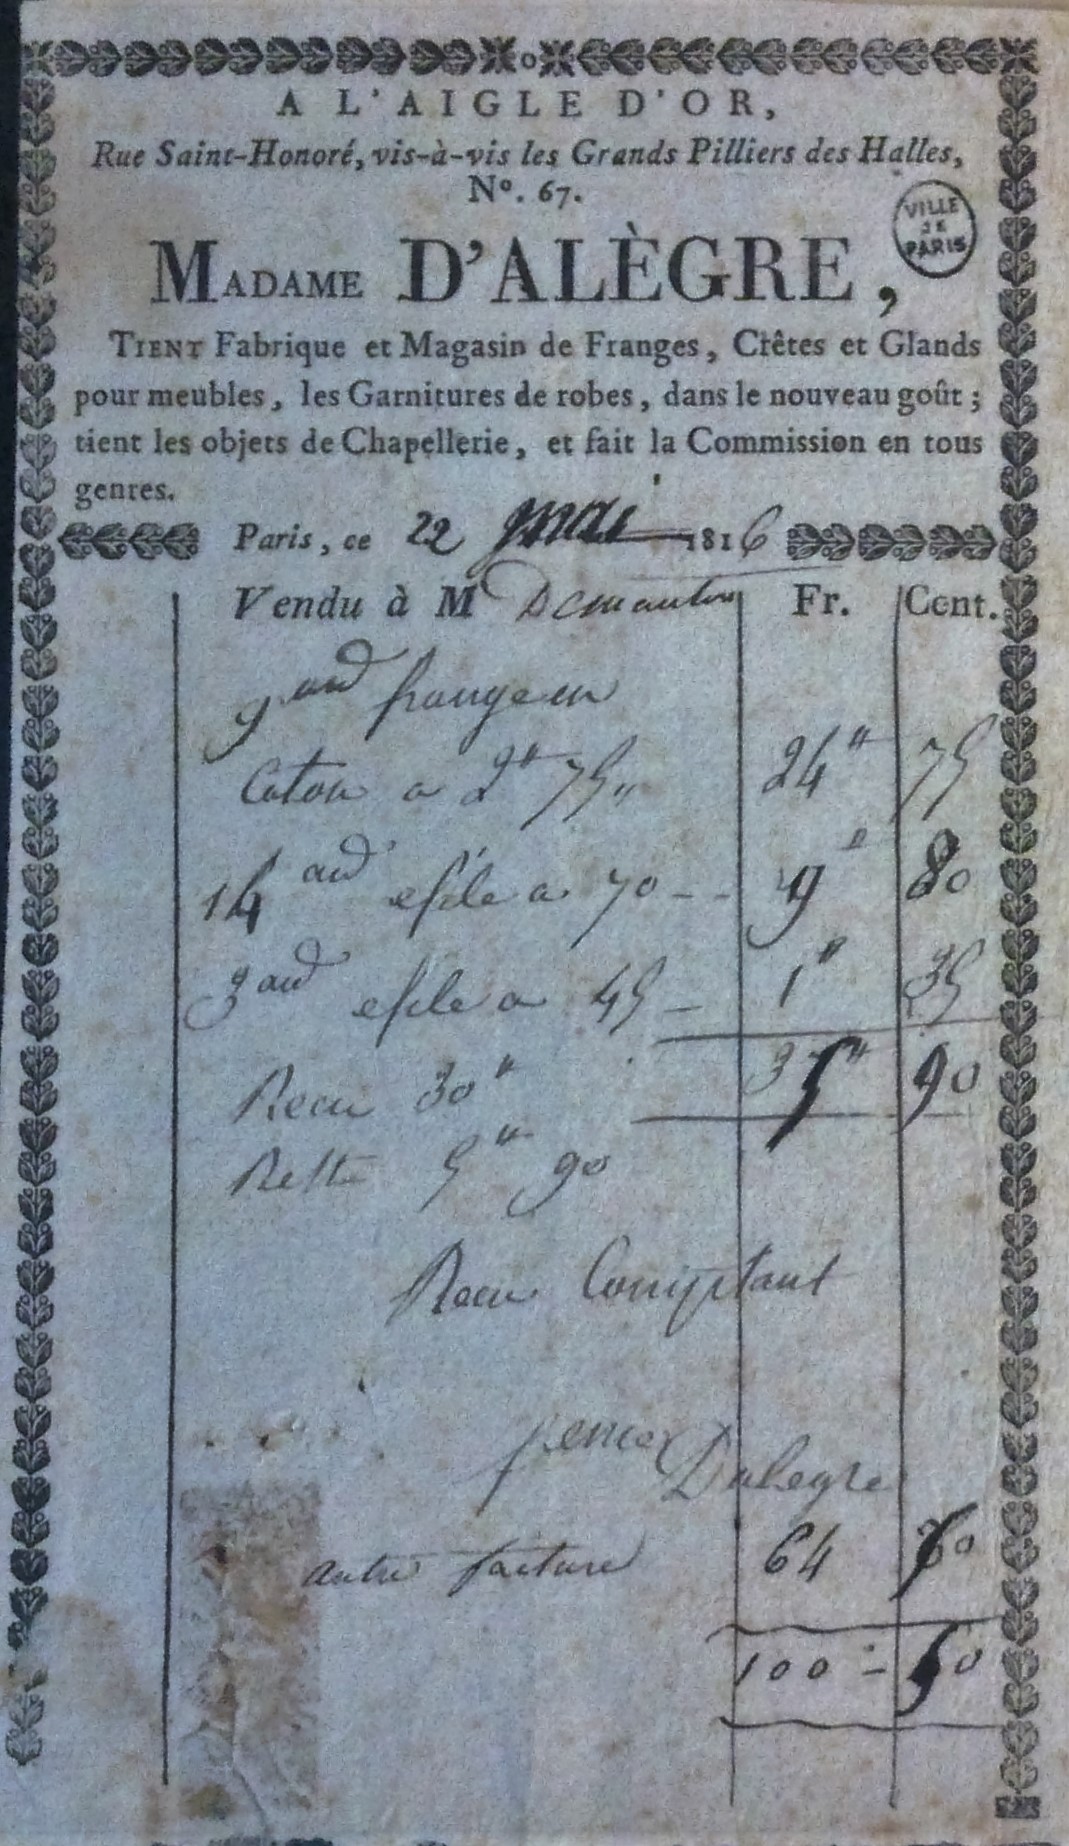 A L'AIGLE D'OR,
Rue Saint-Honoré, vis-à-vis les Grands Pilliers des Halles,
Nº. 67.
VILLE
DE
PARIS
MADAME D'ALÈGRE,
TIENT Fabrique et Magasin de Franges, Crêtes et Glands
pour meubles, les Garnitures de robes, dans le nouveau goût ;
tient les objets de Chapellerie, et fait la Commission en tous
genres.
Paris, ce 22 mai 1816
Vendu à M Fr. Cent.
9 aud frange en
Coton a 2# 75" 24# 75
14 aud efile a 70 -- 9# 80
3 aud efile a 45 - 1# 35
35# 90
Recu 30#
Reste 5# 90
Recu Comptant
Dalegre
autre facture 64 60
100 - 50